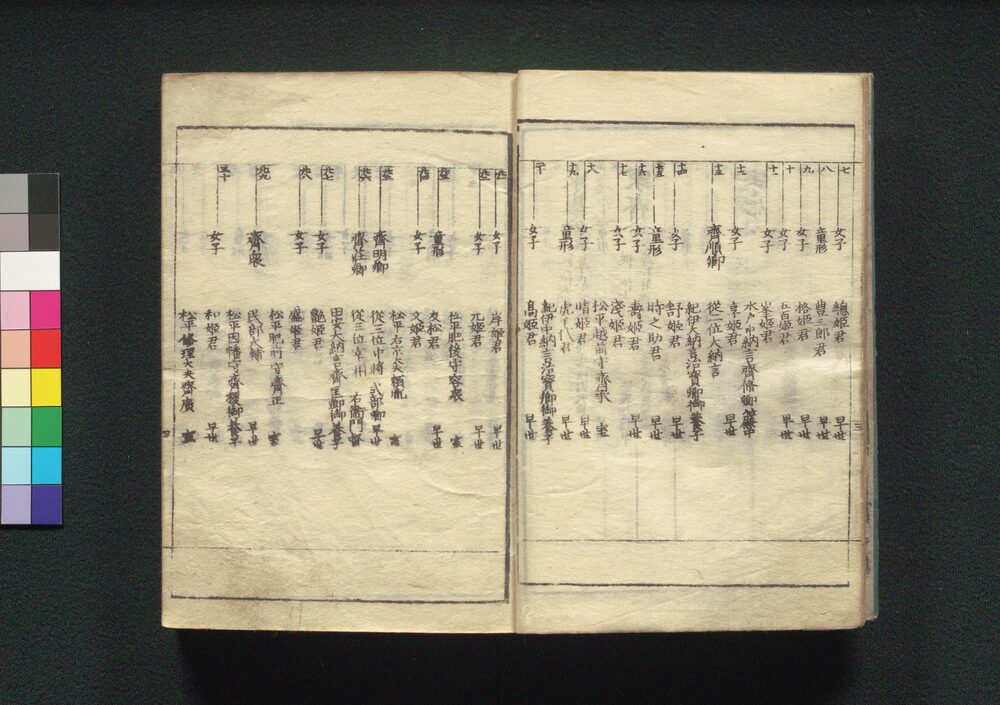 七 女子 總姫君 早世
八 童形 豊三郎君 早世
九 女子 格姫君 早世
十 女子 五百姫君 早世
十一 女子 峯姫君
水戸中納言齊脩卿御簾中
十二 女子 亨姫君 早世
十三 齊順卿 從二位大納言
紀伊大納言治寶卿御養子
十四 女子 舒姫君 早世
十五 童形 時之助君 早世
十六 女子 壽姫君 早世
十七 女子 淺姫君
松平越前守齊承 室
十八 女子 晴姫君 早世
十九 童形 虎千代君 早世
紀伊中納言治寶卿御養子
二十 女子 高姫君 早世
三
廿一 女子 岸姫君 早世
廿二 女子 元姫君 早世
松平肥後守容衆 室
廿三 童形 友松君 早世
廿四 女子 文姫君
松平右京大夫頼胤 室
廿五 齊明卿 從三位中将 式部卿 早世
廿六 齊荘卿 從三位宰相 右衛門督
田安大納言齊匡卿御養子
廿七 女子 艶姫君 早世
廿八 女子 盛姫君
松平肥前守齊正 室
廿九 齊衆 民部大輔 早世
松平因幡守齊稷御養子
三十 女子 和姫君 早世
松平修理大夫齊廣 室
四